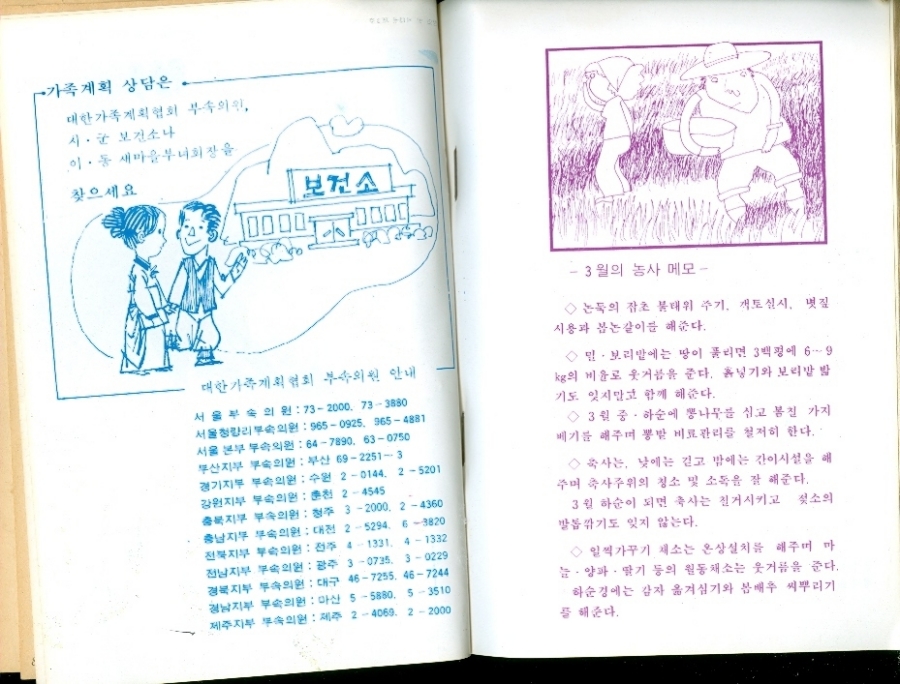 가족계획 상담은
대한가족계획협회 부속의원,
시·군 보건소나
이·동 새마을부녀회장을
찾으세요
보건소
대한가족계획협회 부속의원 안내
서울부속의원 : 73-2000, 73-3880
서울청량리부속의원 : 965-0925, 965-4881
서울 본부 부속의원 : 64-7890, 63-0750
부산지부 부속의원 : 부산 69-2251~3
경기지부 부속의원 : 수원 2-0144, 2-5201
강원지부 부속의원 : 춘천 2-4545
충북지부 부속의원 : 청주 3-2000, 2-4360
충남지부 부속의원 : 대전 2-5294, 6-3820
전북지부 부속의원 : 전주 4-1331, 4-1332
전남지부 부속의원 : 광주 3-0735, 3-0229
경북지부 부속의원 : 대구 46-7255, 46-7244
경남지부 부속의원 : 마산 5-5880, 5-3510
제주지부 부속의원 : 제주 2-4069, 2-2000
- 3월의 농사 메모 -
◇ 논둑의 잡초 불태워 주기, 객토실시, 볏짚
시용과 봄논갈이를 해준다.
◇ 밀·보리밭에는 땅이 풀리면 3백평에 6~9
kg의 비율로 웃거름을 준다. 흙넣기와 보리밭 밟
기도 잊지말고 함께 해준다.
◇ 3월 중·하순에 뽕나무를 심고 봄철 가지
베기를 해주며 뽕밭 비료관리를 철저히 한다.
◇ 축사는, 낮에는 걷고 밤에는 간이시설을 해
주며 축사주위의 청소 및 소독을 잘 해준다.
3월 하순이 되면 축사는 철거시키고 젖소의
발톱깎기도 잊지 않는다.
◇ 일찍가꾸기 채소는 온상설치를 해주며 마
늘·양파·딸기 등의 월동채소는 웃거름을 준다.
하순경에는 감자 옮겨심기와 봄배추 씨뿌리기
를 해준다.